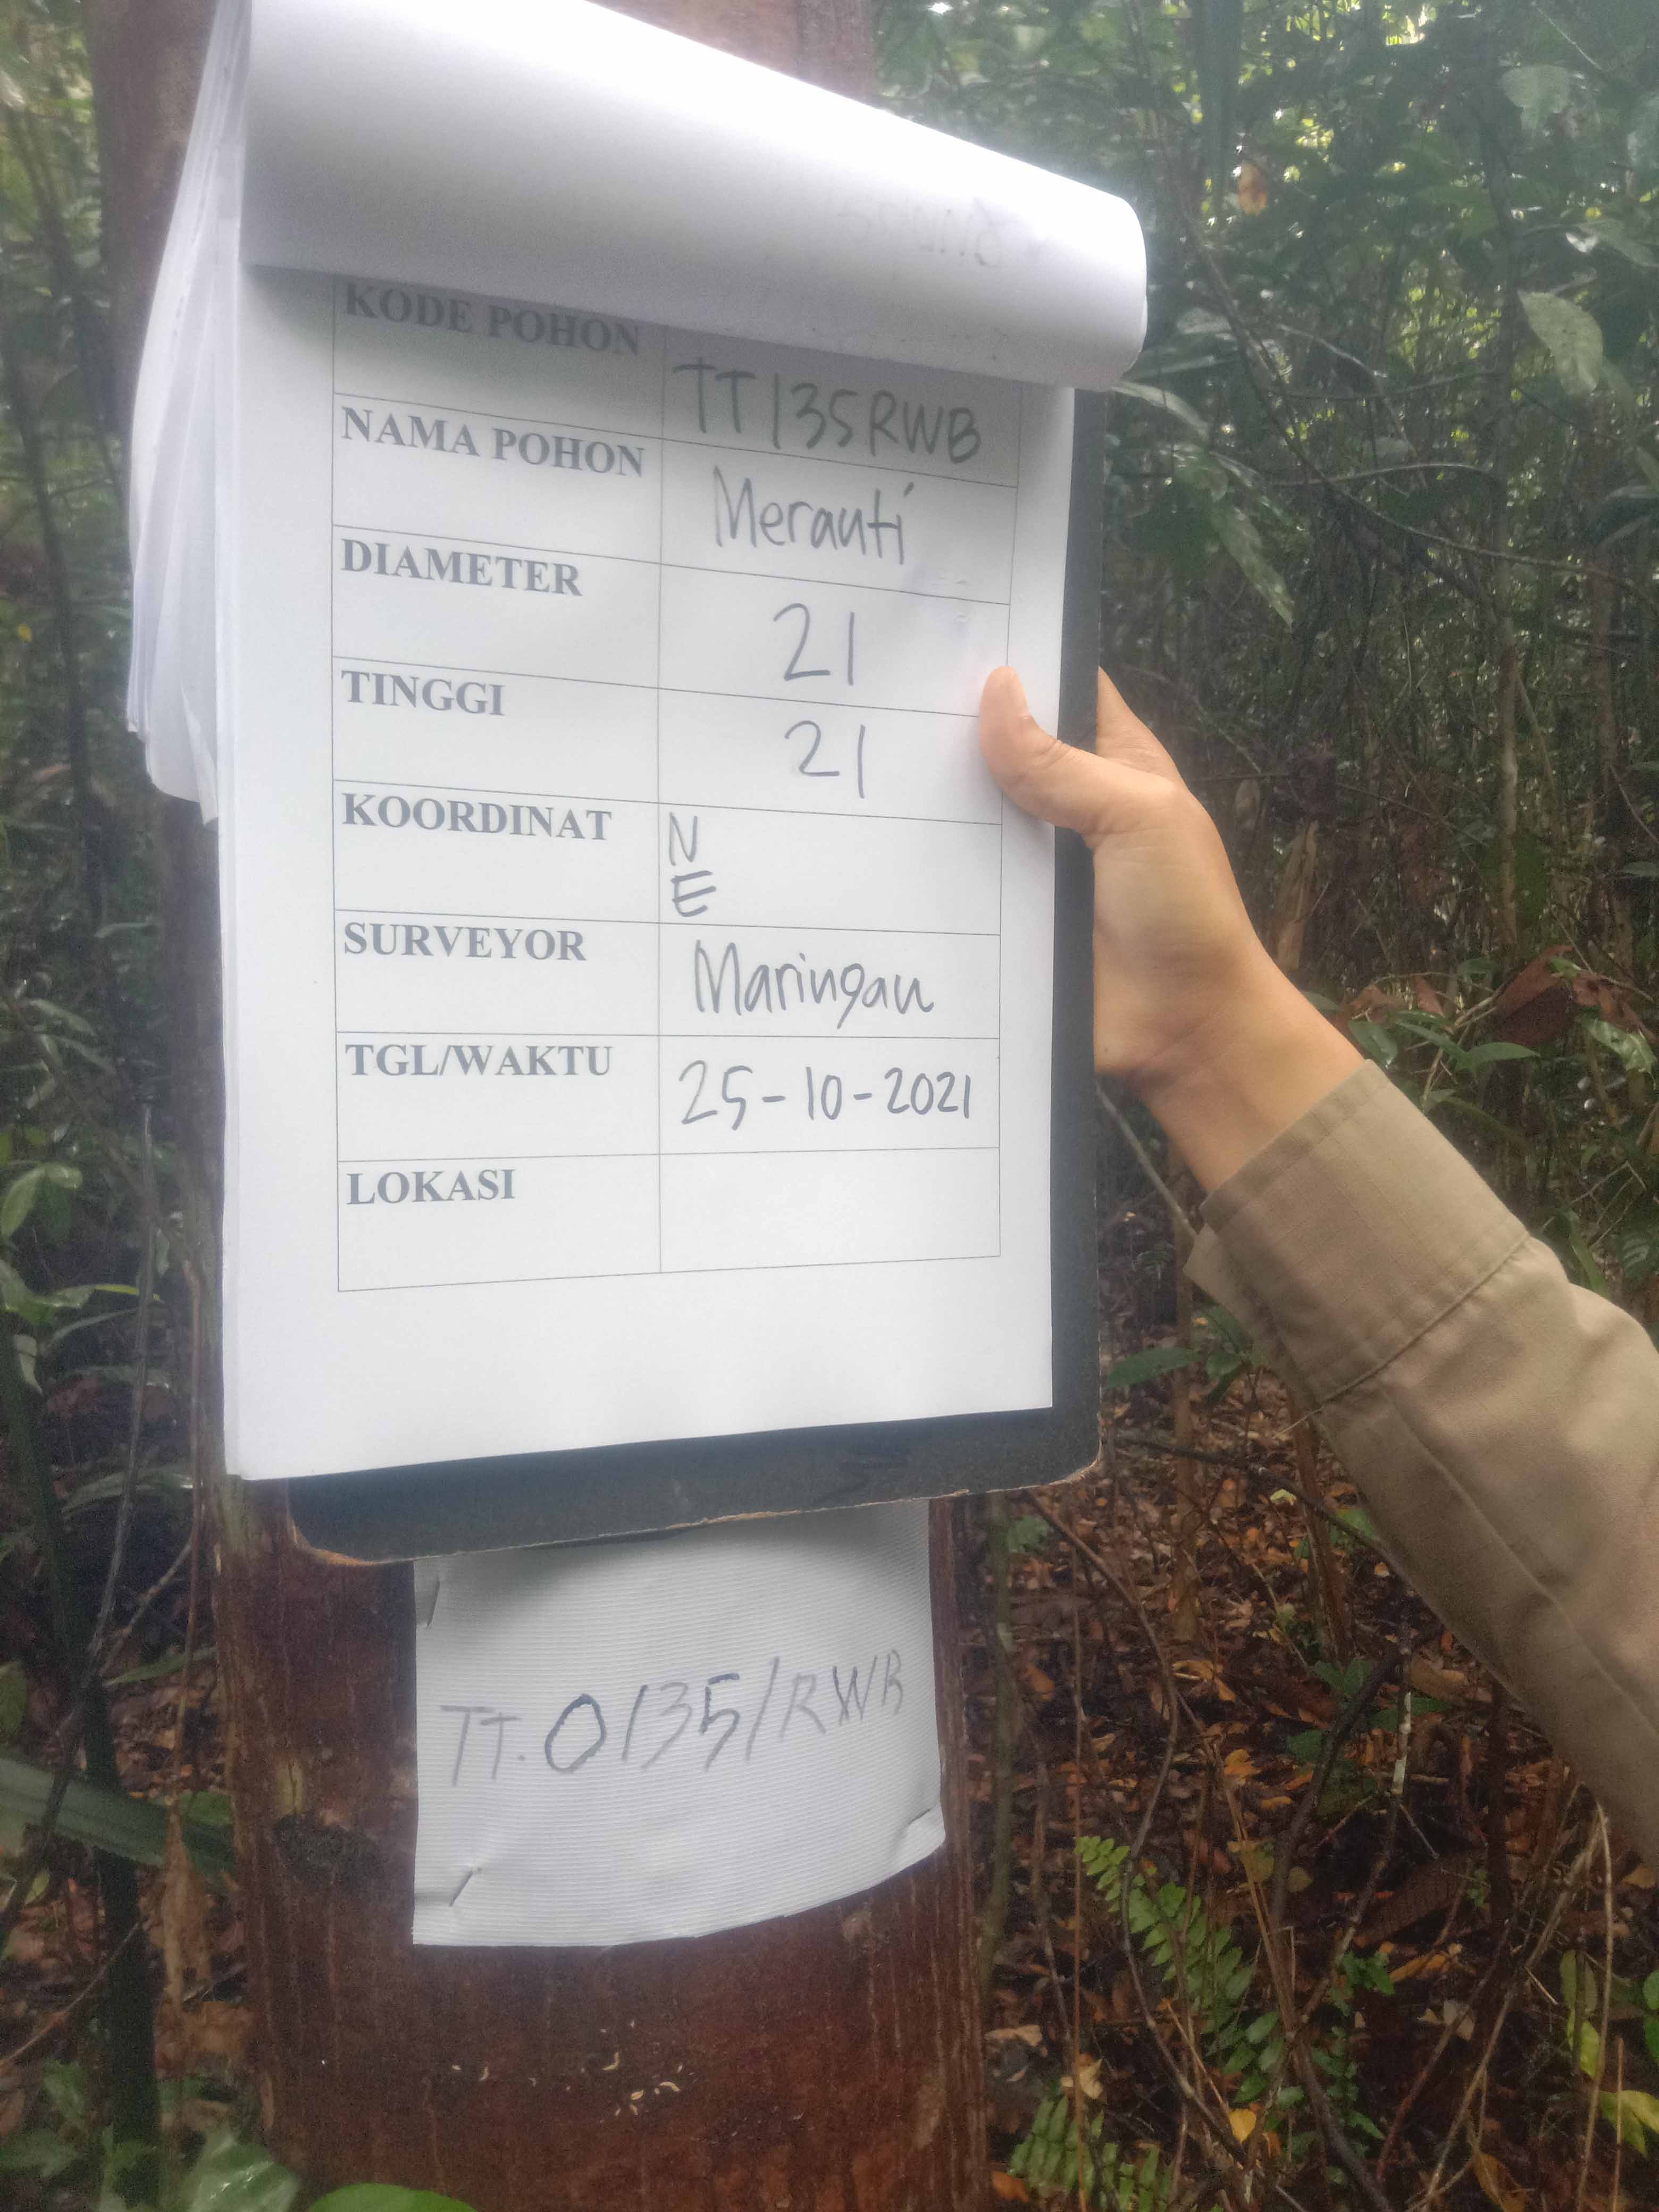 KODE POHON TT135RWB
NAMA POHON Meranti
DIAMETER 21
TINGGI 21
KOORDINAT N
E
SURVEYOR Maringan
TGL/WAKTU 25-10-2021
LOKASI
TT.0135/RWB